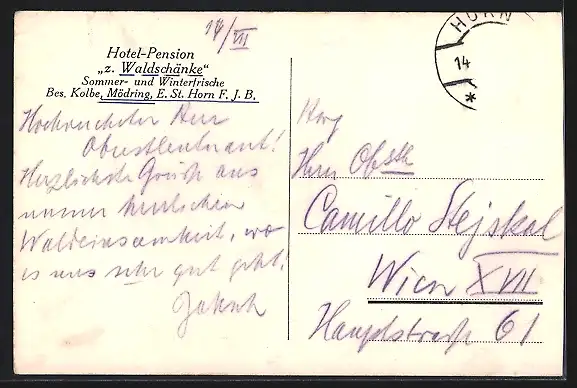 14/VII
Hotel-Pension
„z. Waldschänke“
Sommer- und Winterfrische
Bes. Kolbe, Mödring, E. St. Horn F. J. B.
Hochverehrter Herr
Oberstleutnant!
Herzlichste Grüße aus
unserer herrlichen
Waldeinsamkeit, wo
es uns sehr gut geht!
HORN
14
*
Herrn Obstlt
Camillo Stejskal
Wien XVII
Hauptstraße 61